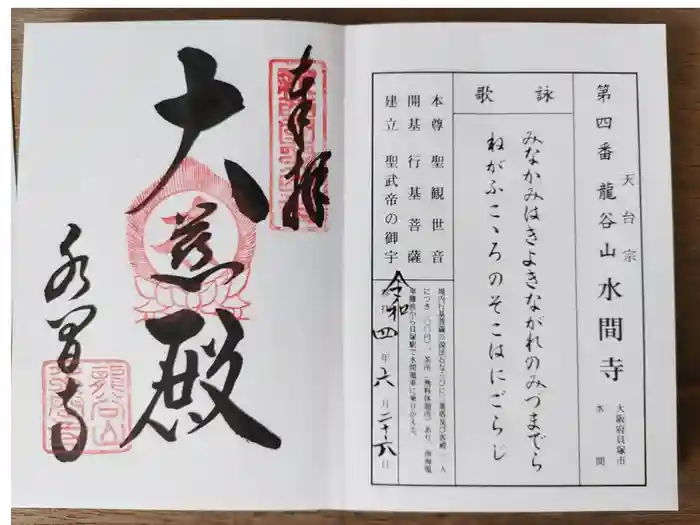 奉拝
大慈殿
水間寺
龍谷山
第四番 龍谷山 水間寺
天台宗
大阪府貝塚市
水間
詠歌
みなかみはきよきながれのみづまでら
ねがふこゝろのそこはにごらじ
本尊 聖観世音
開基 行基菩薩
建立 聖武帝の御宇
令和四年六月二十六日